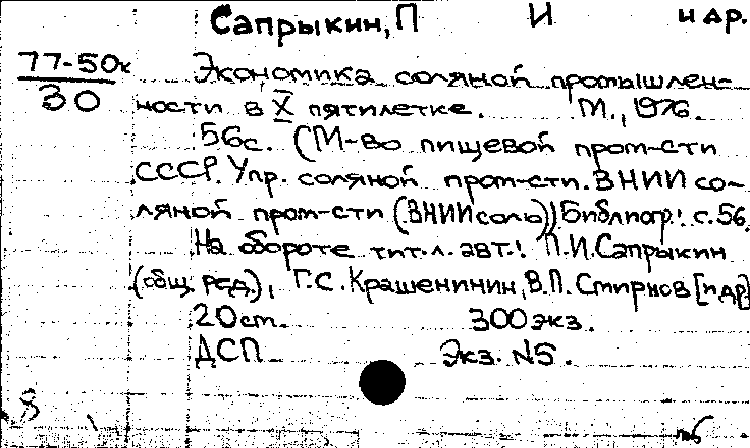 Сапрыкин, П И и др.
77-50к
30
Экономика соляной промышлен-
ности в X пятилетке. М., 1976.
56с. (М-во пищевой пром-сти
СССР. Упр. соляной пром-сти. ВНИИ со-
ляной пром-сти (ВНИИсоль)) Библиогр.: с.56.
На обороте тит.л. авт.: П.И.Сапрыкин
(общ. ред), Г.С.Крашенинин, В.П.Смирнов [и др]
20см. 300 экз.
ДСП Экз. N5.
8